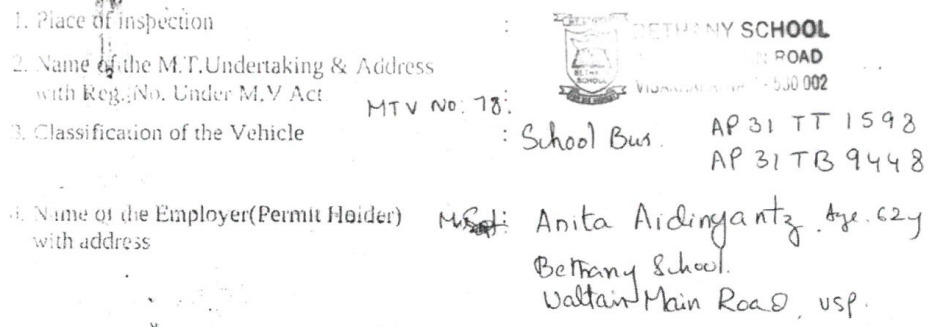 1. Place of inspection :
BETHANY SCHOOL
ROAD
530 002
2. Name of the M.T.Undertaking & Address
with Reg. No. Under M.V Act MTV No: 78:
3. Classification of the Vehicle : School Bus. AP 31 TT 1598
AP 31 TB 9448
4. Name of the Employer(Permit Holder) : Anita Aidinyantz. Age. 62y
with address
Bethany School.
Waltair Main Road, VSP.